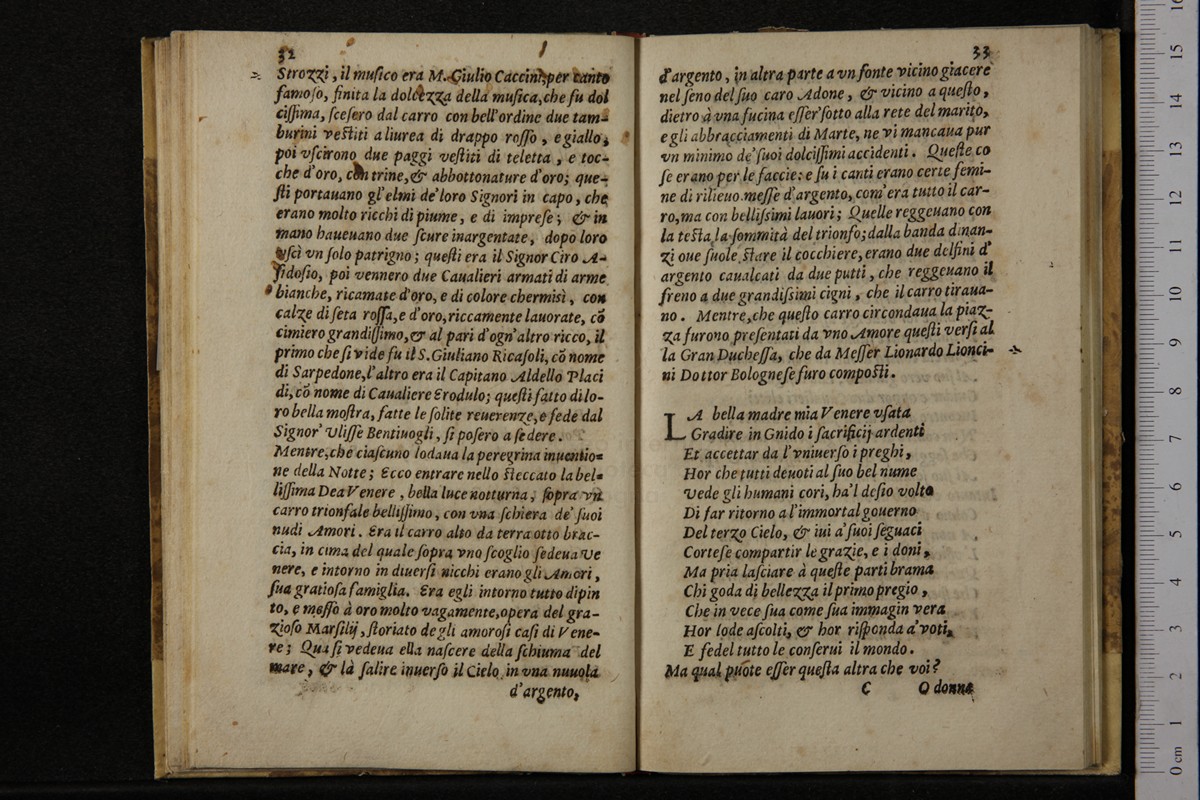 32
Strozzi, il musico era M. Giulio Caccini, per canto
famoso, finita la dolcezza della musica, che fu dol
cissima, scesero dal carro con bell'ordine due tam-
burini vestiti a liurea di drappo rosso, e giallo,
poi vscirono due paggi vestiti di teletta, e toc-
che d'oro, con trine, & abbottonature d'oro; que-
sti portauano gl'elmi de' loro Signori in capo, che
erano molto ricchi di piume, e di imprese; & in
mano haueuano due scure inargentate, dopo loro
vscì vn solo patrigno; questi era il Signor Ciro A-
lidosio, poi vennero due Caualieri armati di arme
bianche, ricamate d'oro, e di colore chermisì, con
calze di seta rossa, e d'oro, riccamente lauorate, cō
cimiero grandissimo, & al pari d'ogn'altro ricco, il
primo che si vide fu il S. Giuliano Ricasoli, cō nome
di Sarpedone, l'altro era il Capitano Aldello Placi
di, cō nome di Caualiere Erodulo; questi fatto di lo-
ro bella mostra, fatte le solite reuerenze, e fede dal
Signor' Vlisse Bentiuogli, si posero a sedere.
Mentre, che ciascuno lodaua la peregrina inuentio-
ne della Notte; Ecco entrare nello steccato la bel-
lissima Dea Venere, bella luce notturna, sopra vn
carro trionfale bellissimo, con vna schiera de' suoi
nudi Amori. Era il carro alto da terra otto brac-
cia, in cima del quale sopra vno scoglio sedeua Ve
nere, e intorno in diuersi nicchi erano gli Amori,
sua gratiosa famiglia. Era egli intorno tutto dipin
to, e messo à oro molto vagamente, opera del gra-
zioso Marsilij, storiato degli amorosi casi di Vene-
re; Qua si vedeua ella nascere della schiuma del
mare, & là salire inuerso il Cielo in vna nuuola
d'argento,
33
d'argento, in altra parte a vn fonte vicino giacere
nel seno del suo caro Adone, & vicino a questo,
dietro à vna fucina esser' sotto alla rete del marito,
e gli abbracciamenti di Marte, ne vi mancaua pur
vn minimo de' suoi dolcissimi accidenti. Queste co
se erano per le faccie: e su i canti erano certe femi-
ne di rilieuo messe d'argento, com'era tutto il car-
ro, ma con bellissimi lauori; Quelle reggeuano con
la testa la sommità del trionfo; dalla banda dinan-
zi oue suole stare il cocchiere, erano due delfini d'
argento caualcati da due putti, che reggeuano il
freno a due grandissimi cigni, che il carro tiraua-
no. Mentre, che questo carro circondaua la piaz-
za furono presentati da vno Amore questi versi al
la Gran Duchessa, che da Messer Lionardo Lionci-
ni Dottor Bolognese furo composti.
LA bella madre mia Venere vsata
Gradire in Gnido i sacrificij ardenti
Et accettar da l'vniuerso i preghi,
Hor che tutti deuoti al suo bel nume
Vede gli humani cori, ha'l desio volto
Di far ritorno a l'immortal gouerno
Del terzo Cielo, & iui a' suoi seguaci
Cortese compartir le grazie, e i doni,
Ma pria lasciare à queste parti brama
Chi goda di bellezza il primo pregio,
Che in vece sua come sua immagin vera
Hor lode ascolti, & hor risponda a' voti,
E fedel tutto le conserui il mondo.
Ma qual puote esser questa altra che voi?
C O donna